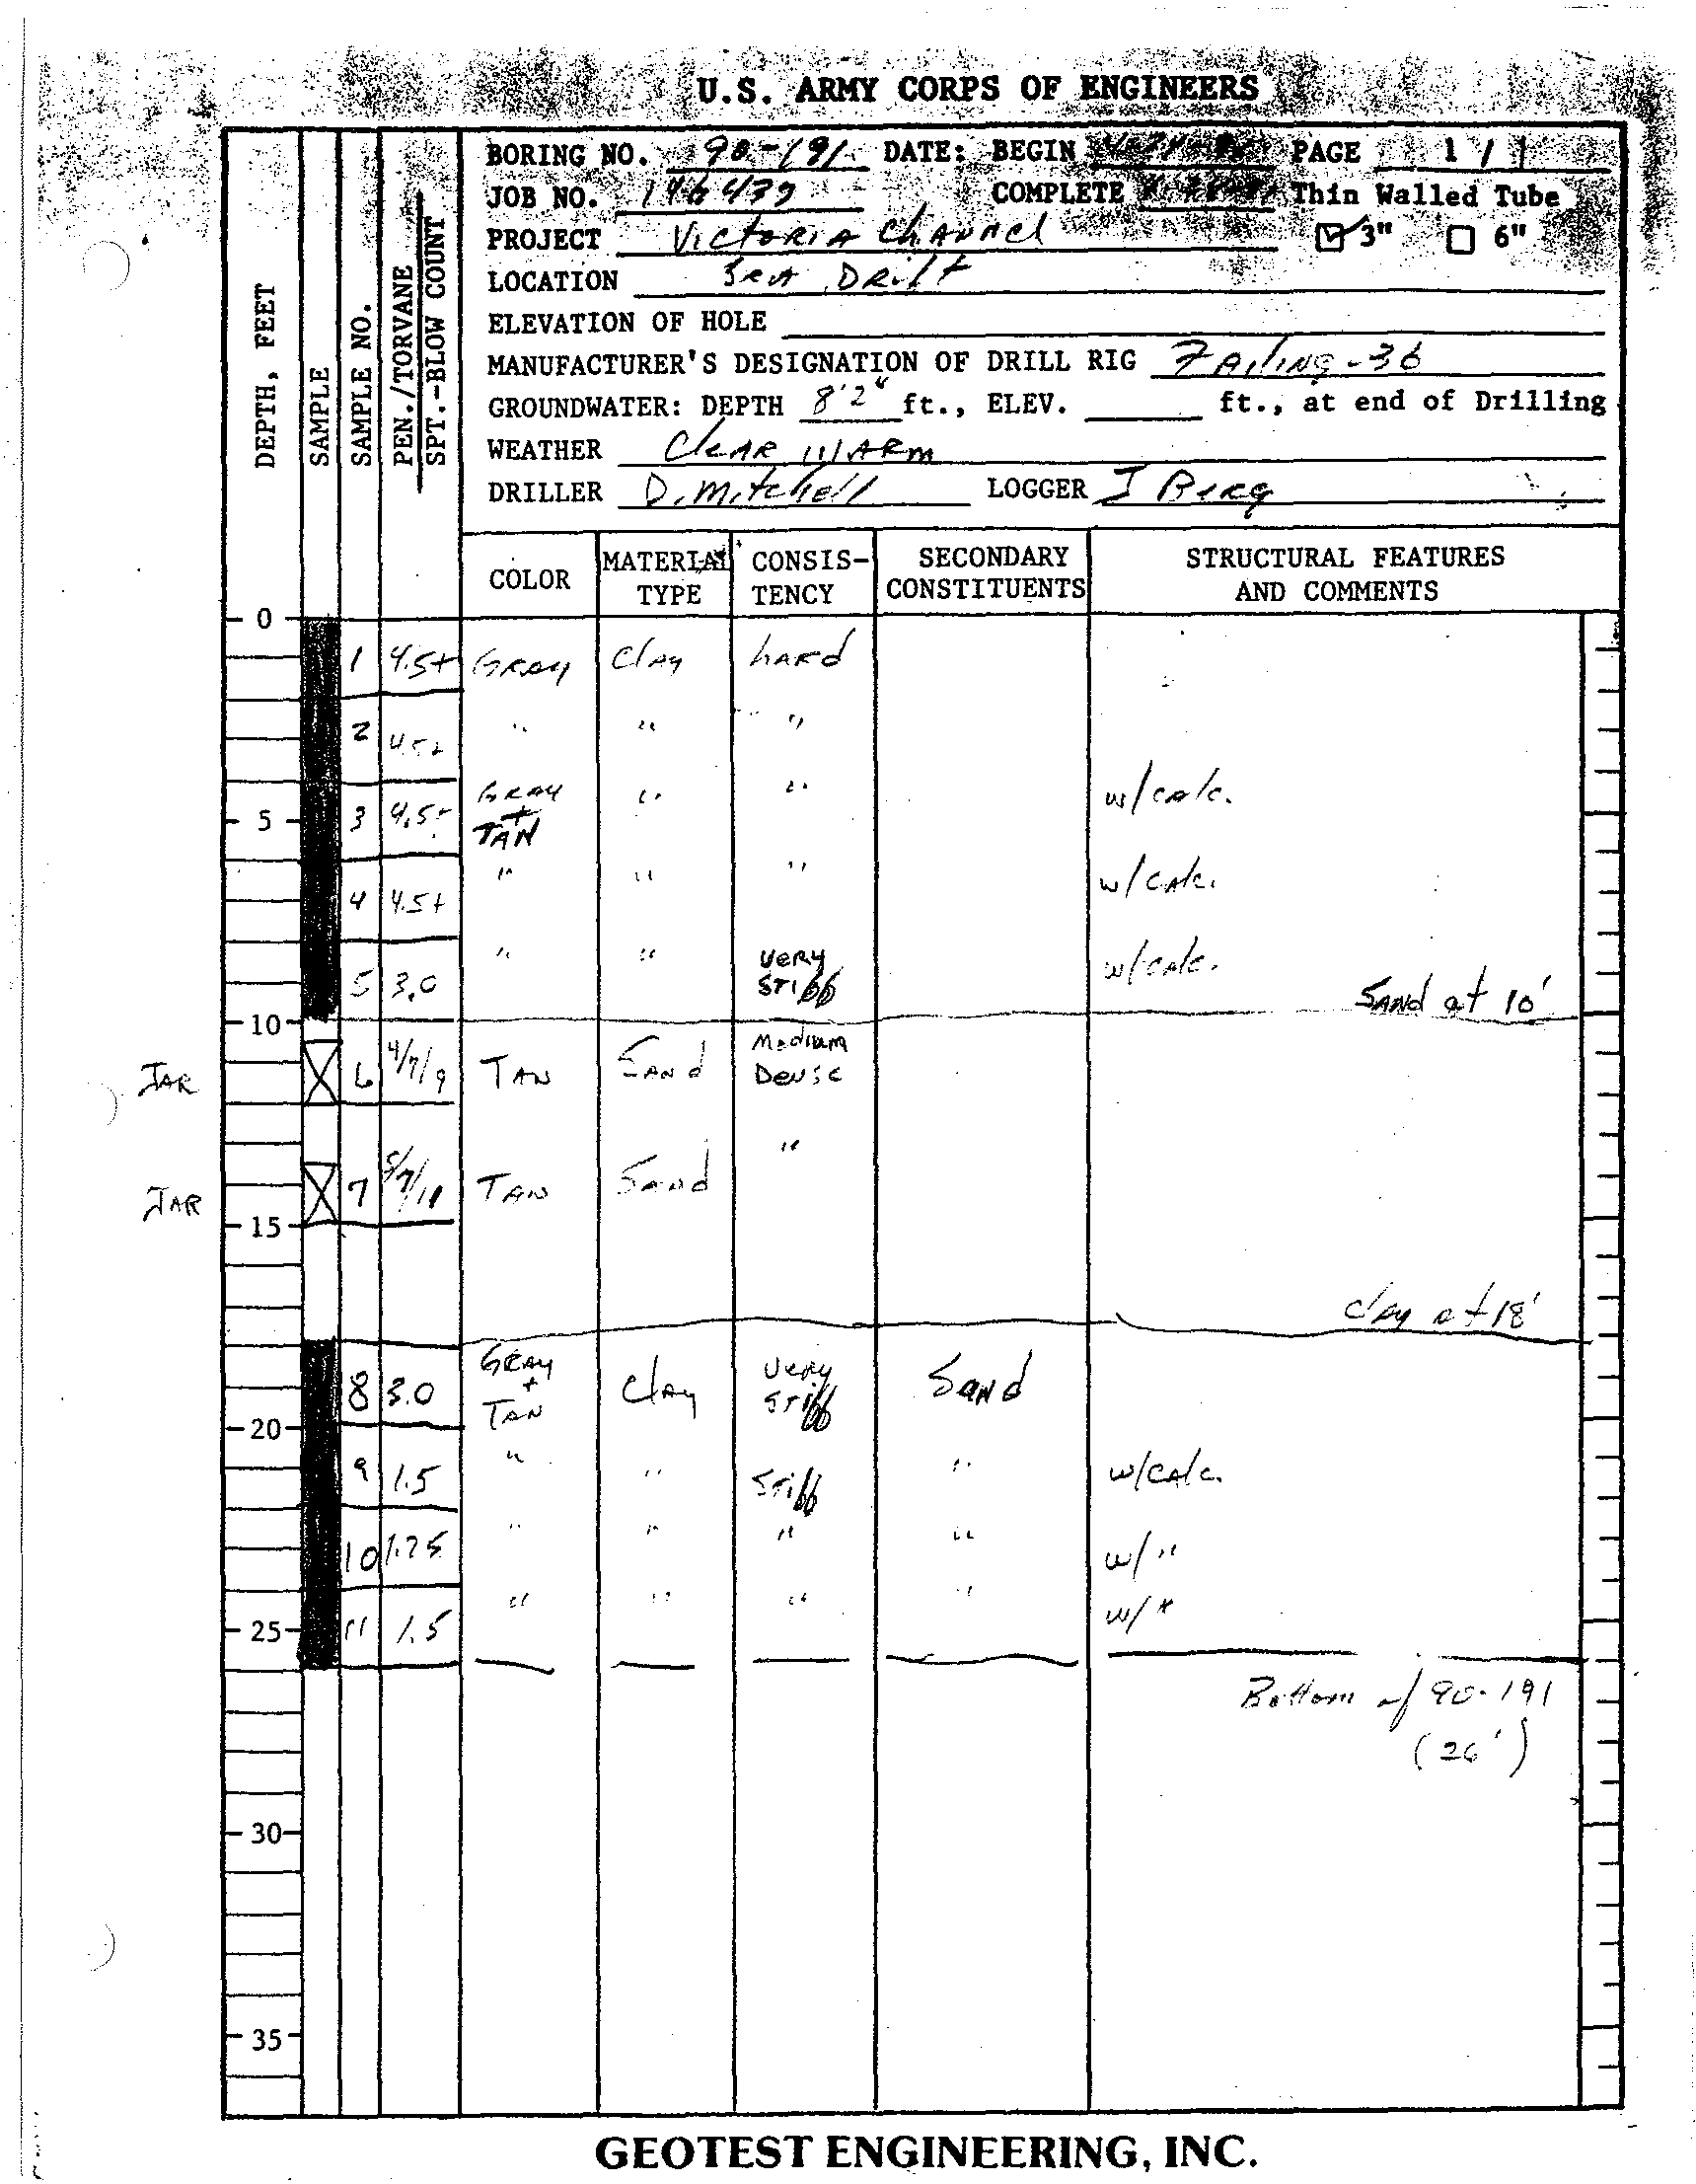 U.S. ARMY CORPS OF ENGINEERS
BORING NO. 90-191 DATE: BEGIN PAGE 1 / 1
JOB NO. 146439 COMPLETE Thin Walled Tube
PROJECT VICTORIA ChANNel 3" 6"
LOCATION SeA DRift
ELEVATION OF HOLE
MANUFACTURER'S DESIGNATION OF DRILL RIG FAiliNG-36
GROUNDWATER: DEPTH 8'2" ft., ELEV. ft., at end of Drilling
WEATHER CleAR WARM
DRILLER D. Mitchell LOGGER J Berg
DEPTH, FEET
SAMPLE
SAMPLE NO.
PEN./TORVANE
SPT.-BLOW COUNT
COLOR MATERIAL TYPE CONSIS-TENCY SECONDARY CONSTITUENTS STRUCTURAL FEATURES AND COMMENTS
0
1 4.5+ GRAY ClAy hARd
2 4.5+ " " "
5 3 4.5+ GRAY + TAN " " w/calc.
4 4.5+ " " " w/cAlc.
5 3.0 " " VeRY STiff w/cAlc.
SANd at 10'
10
JAR 6 4/7/9 TAN SANd Medium DeNse
JAR 7 5/7/11 TAN SANd "
15
clay at 18'
8 3.0 GRAY + TAN ClAy VeRy STiff SaNd
20
9 1.5 " " STiff " w/cAlc.
10 1.25 " " " " w/ "
25 11 1.5 " " " " w/ "
Bottom of 90-191
(26')
30
35
GEOTEST ENGINEERING, INC.